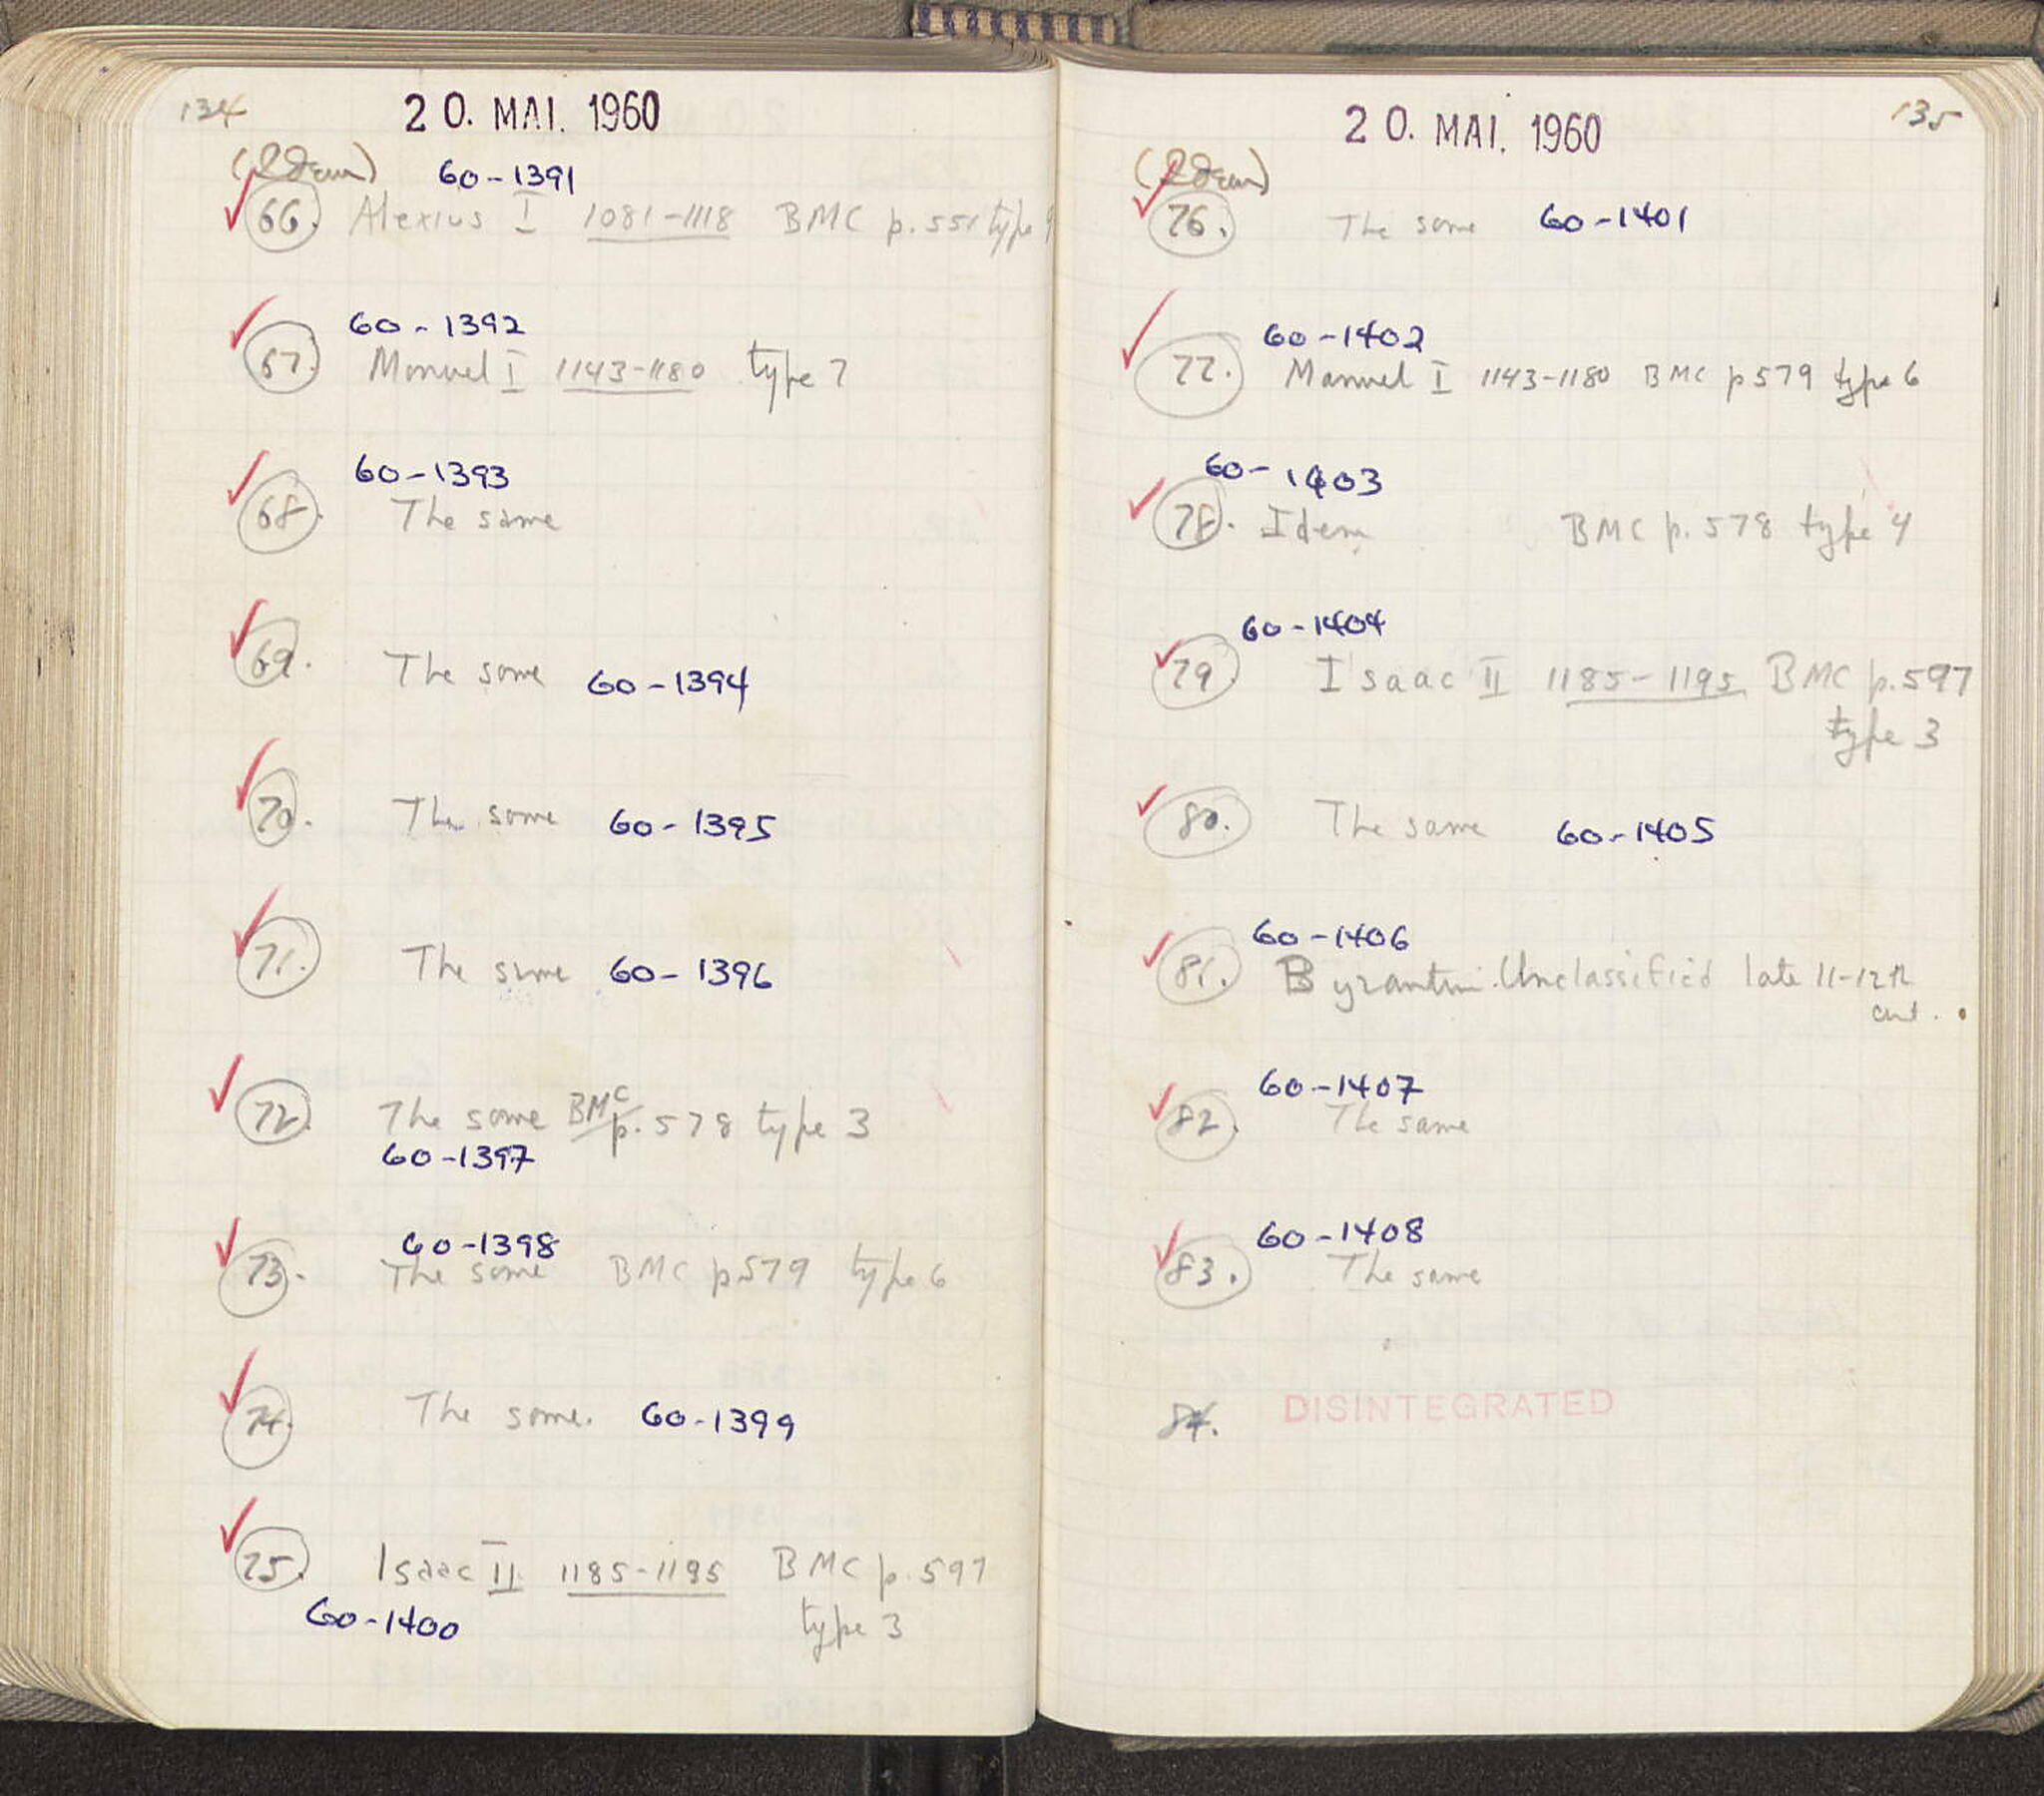 134
20. MAI. 1960
60-1391
66. Alexius I 1081-1118 BMC p.551 type 9
60-1392
67. Manuel I 1143-1180 type 7
60-1393
68. The same
69. The same 60-1394
70. The same 60-1395
71. The same 60-1396
72. The same BMC p.578 type 3
60-1397
60-1398
73. The same BMC p579 type 6
74. The same. 60-1399
75. Isaac II 1185-1195 BMC p.597
type 3
60-1400
135
20. MAI. 1960
76. The same 60-1401
60-1402
77. Manuel I 1143-1180 BMC p579 type 6
60-1403
78. Idem BMC p.578 type 4
60-1404
79. Isaac II 1185-1195 BMC p.597
type 3
80. The same 60-1405
60-1406
81. Byzantine. Unclassified late 11-12th
cent.
60-1407
82. The same
60-1408
83. The same
84. DISINTEGRATED